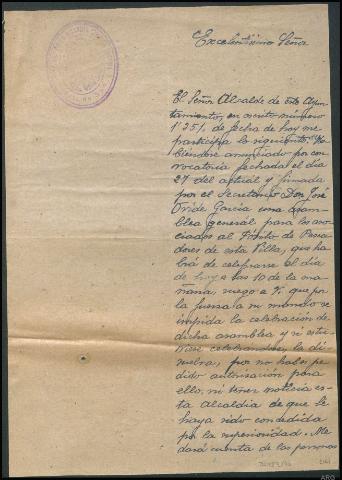 Excelentísimo Señor
El Señor Alcalde de este Ayun-
tamiento, en escrito número
1351 de fecha de hoy me
participa lo siguiente: "Ha-
biéndose anunciado por con-
vocatoria fechada el día
27 del actual y firmada
por el Secretario Don José
García una asam-
blea general para los aso-
ciados al Pósito de Pesca-
dores de esta Villa, que ha-
brá de celebrarse el día
de hoy a las 10 de la ma-
ñana, ruego a V. que por
la fuerza a su mando se
impida la celebración de
dicha asamblea y si estu-
viese celebrandose, la di-
suelva, por no haber pe-
dido autorización para
ello, ni tener noticia es-
ta Alcaldia de que le
haya sido concedida
por la superioridad. Me
dará cuenta de las personas